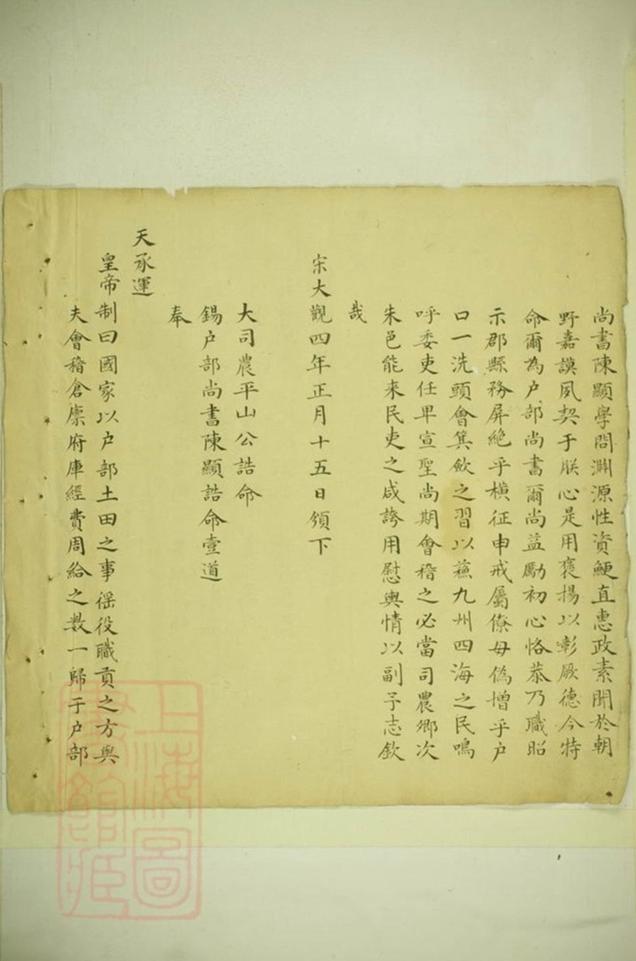 尚書陳顯學問淵源性資鯁直惠政素聞於朝
野嘉謨夙契于朕心是用褒揚以彰厥德今特
命爾為户部尚書爾尚益勵初心恪恭乃職昭
示郡縣務屏絶乎橫征申戒屬僚毋偽增乎户
口一洗頭會箕歛之習以蘓九州四海之民嗚
呼委吏任卑宣聖尚期會稽之必當司農鄉次
朱邑能来民吏之咸誇用慰輿情以副予志欽
哉
宋大觀四年正月十五日頒下
大司農平山公誥命
錫户部尚書陳顯誥命壹道
奉
天承運
皇帝制曰國家以户部土田之事徭役職貢之方與
夫會稽倉廪府庫經費周給之数一歸于户部
上海圖
書館藏